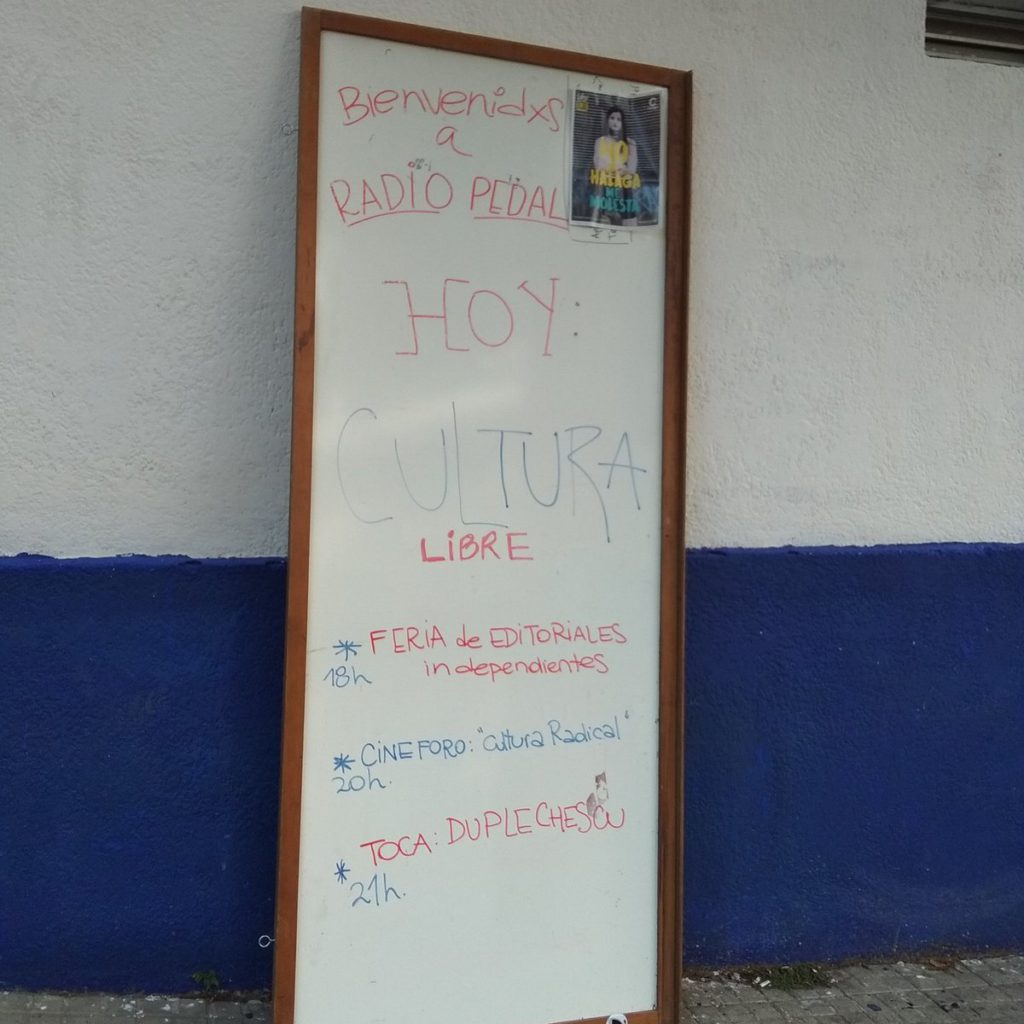 Bienvenidxs
a
RADIO PEDAL
NO
HALAGA
ME
MOLESTA
HOY:
CULTURA
LIBRE
* FERIA de EDITORIALES
18h independientes
* CINEFORO: "Cultura Radical"
20h.
* TOCA: DUPLECHESCU
21h.